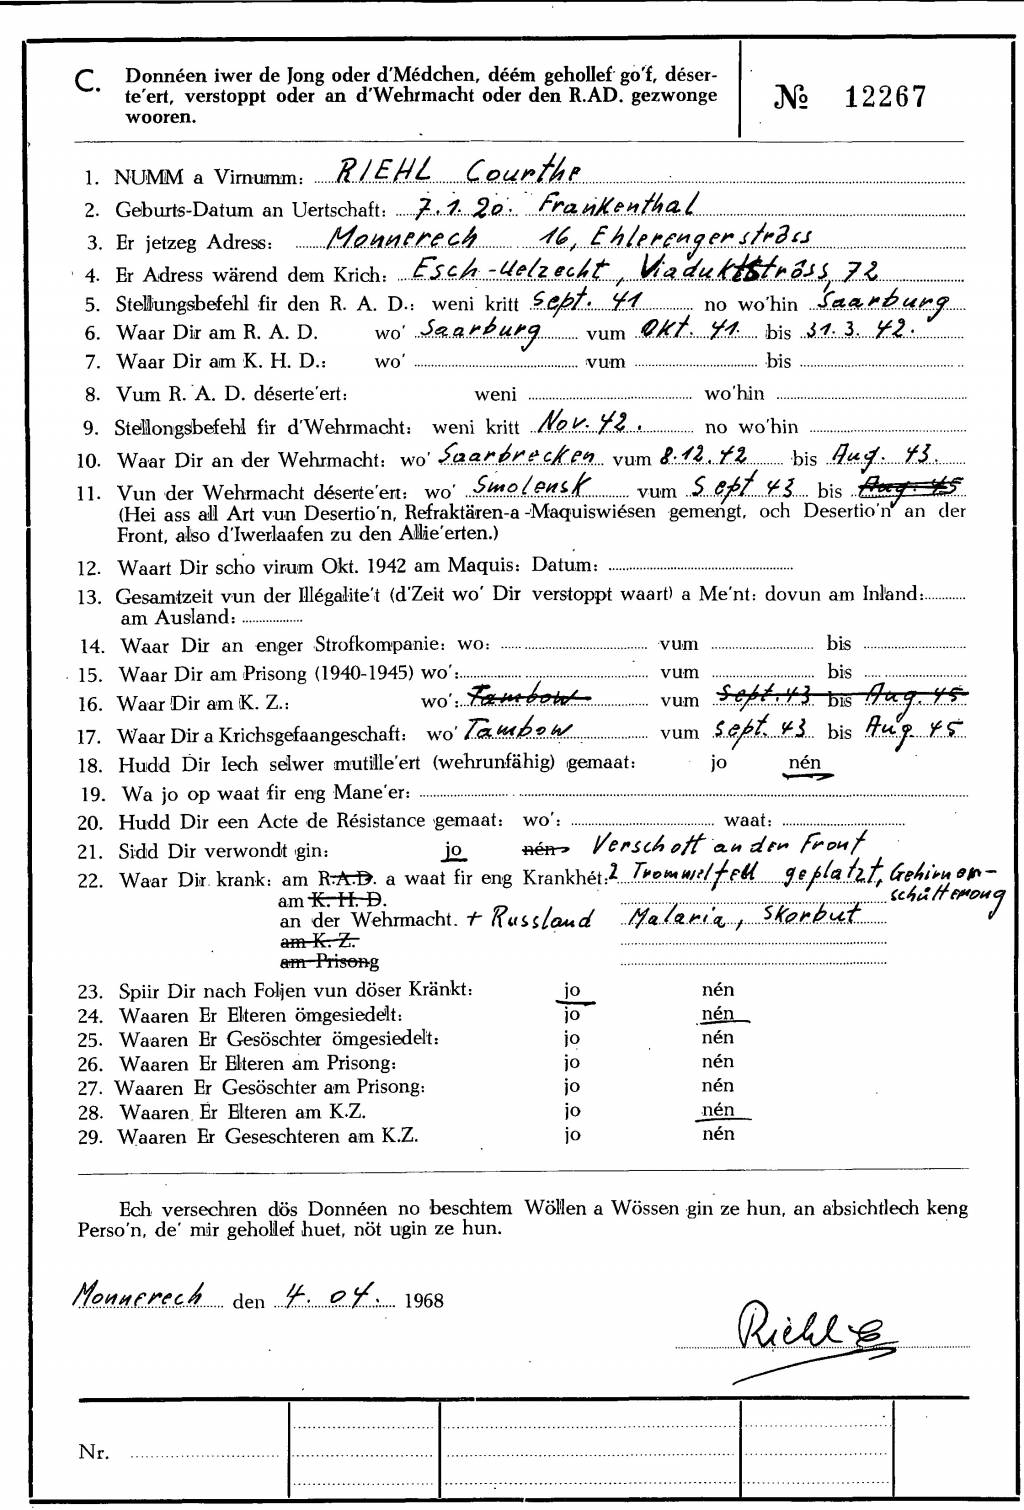 C. Donnéen iwer de Jong oder d'Médchen, déém gehollef go'f, déser-
te'ert, verstoppt oder an d'Wehrmacht oder den R.AD. gezwonge
wooren.
№ 12267
1. NUMM a Virnumm: RIEHL Courthe
2. Geburts-Datum an Uertschaft: 7.1.20. Frankenthal
3. Er jetzeg Adress: Monnerech 16, Ehlerengerstròss
4. Er Adress wärend dem Krich: Esch-Uelzecht, Viaduktströss, 72
5. Stellungsbefehl fir den R. A. D.: weni kritt Sept. 41 no wo'hin Saarburg
6. Waar Dir am R. A. D. wo' Saarburg vum Okt. 41. bis 31. 3. 42.
7. Waar Dir am K. H. D.: wo' vum bis
8. Vum R. A. D. déserte'ert: weni wo'hin
9. Stellongsbefehl fir d'Wehrmacht: weni kritt Nov. 42. no wo'hin
10. Waar Dir an der Wehrmacht: wo' Saarbrecken vum 8.12.42 bis Aug. 43.
11. Vun der Wehrmacht déserte'ert: wo' Smolensk vum Sept 43 bis Aug. 45
(Hei ass all Art vun Desertio'n, Refraktären-a-Maquiswiésen gemengt, och Desertio'n an der
Front, also d'Iwerlaafen zu den Allie'erten.)
12. Waart Dir scho virum Okt. 1942 am Maquis: Datum:
13. Gesamtzeit vun der Illégalite't (d'Zeit wo' Dir verstoppt waart) a Me'nt: dovun am Inland:
am Ausland:
14. Waar Dir an enger Strofkompanie: wo: vum bis
15. Waar Dir am Prisong (1940-1945) wo': vum bis
16. Waar Dir am K. Z.: wo': Tambow vum Sept. 43 bis Aug. 45
17. Waar Dir a Krichsgefaangeschaft: wo' Tambow vum Sept. 43 bis Aug. 45
18. Hudd Dir Iech selwer mutille'ert (wehrunfähig) gemaat: jo nén
19. Wa jo op waat fir eng Mane'er:
20. Hudd Dir een Acte de Résistance gemaat: wo': waat:
21. Sidd Dir verwondt gin: jo nén Verschott an der Front
22. Waar Dir krank: am R.A.D. a waat fir eng Krankhét: 2 Trommelfell geplatzt, Gehirnerschütterong
am K. H. D.
an der Wehrmacht. + Russland Malaria, Skorbut
am K. Z.
am Prisong
23. Spiir Dir nach Foljen vun döser Kränkt: jo nén
24. Waaren Er Elteren ömgesiedelt: jo nén
25. Waaren Er Gesöschter ömgesiedelt: jo nén
26. Waaren Er Elteren am Prisong: jo nén
27. Waaren Er Gesöschter am Prisong: jo nén
28. Waaren Er Elteren am K.Z. jo nén
29. Waaren Er Geseschteren am K.Z. jo nén
Ech versechren dös Donnéen no beschtem Wöllen a Wössen gin ze hun, an absichtlech keng
Perso'n, de' mir gehollef huet, nöt ugin ze hun.
Monnerech den 4. 04. 1968
Riehl C
Nr.